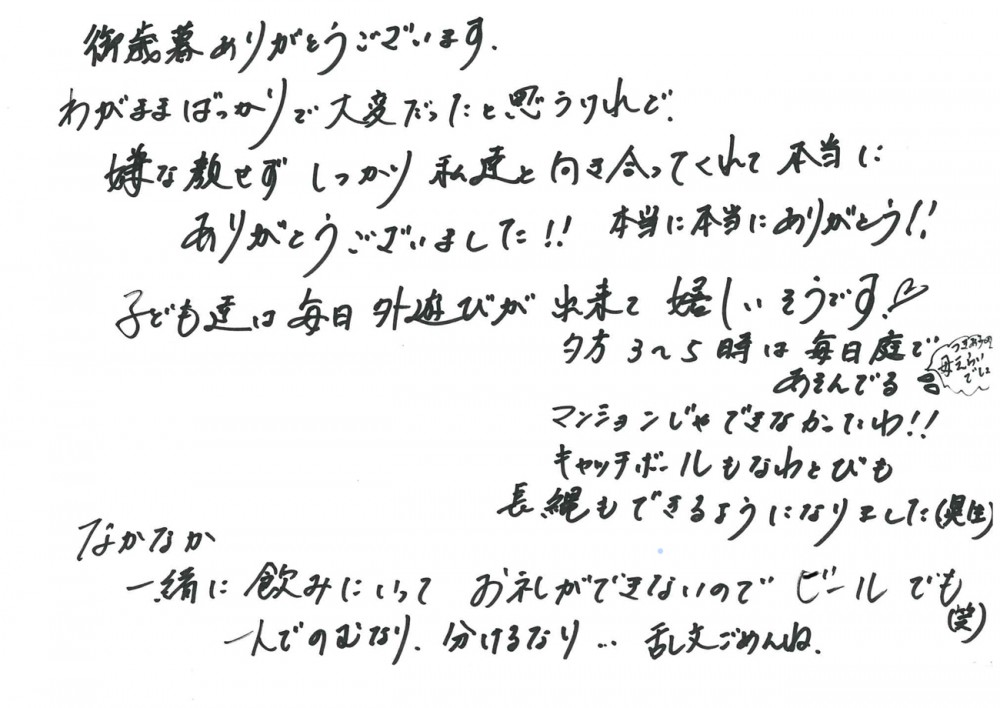 御歳暮ありがとうございます.
わがままばっかりで大変だったと思うけれど.
嫌な顔せずしっかり私達と向き合ってくれて本当に
ありがとうございました!! 本当に本当にありがとう!!
子ども達は毎日外遊びが出来て嬉しいそうです!♡
夕方3~5時は毎日庭で
あそんでる
つきあうの
母えらい
でしょ
マンションじゃできなかったわ!!
キャッチボールもなわとびも
長縄もできるようになりました
なかなか
一緒に飲みにいって お礼ができないので ビールでも
(笑)
一人でのむなり. 分けるなり... 乱文ごめんね.